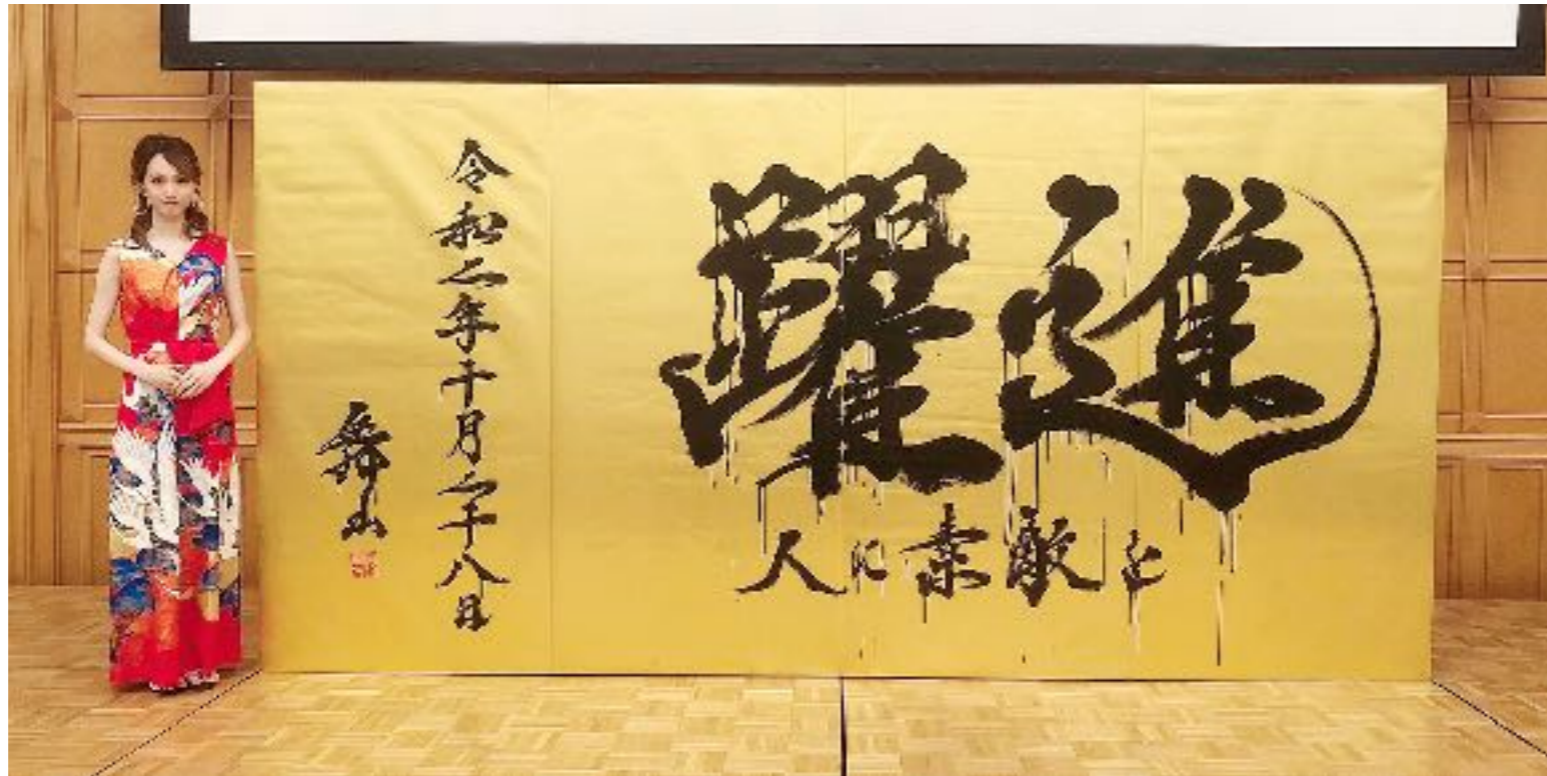 躍進
人に素敵を
令和二年十月二十八日
舞山